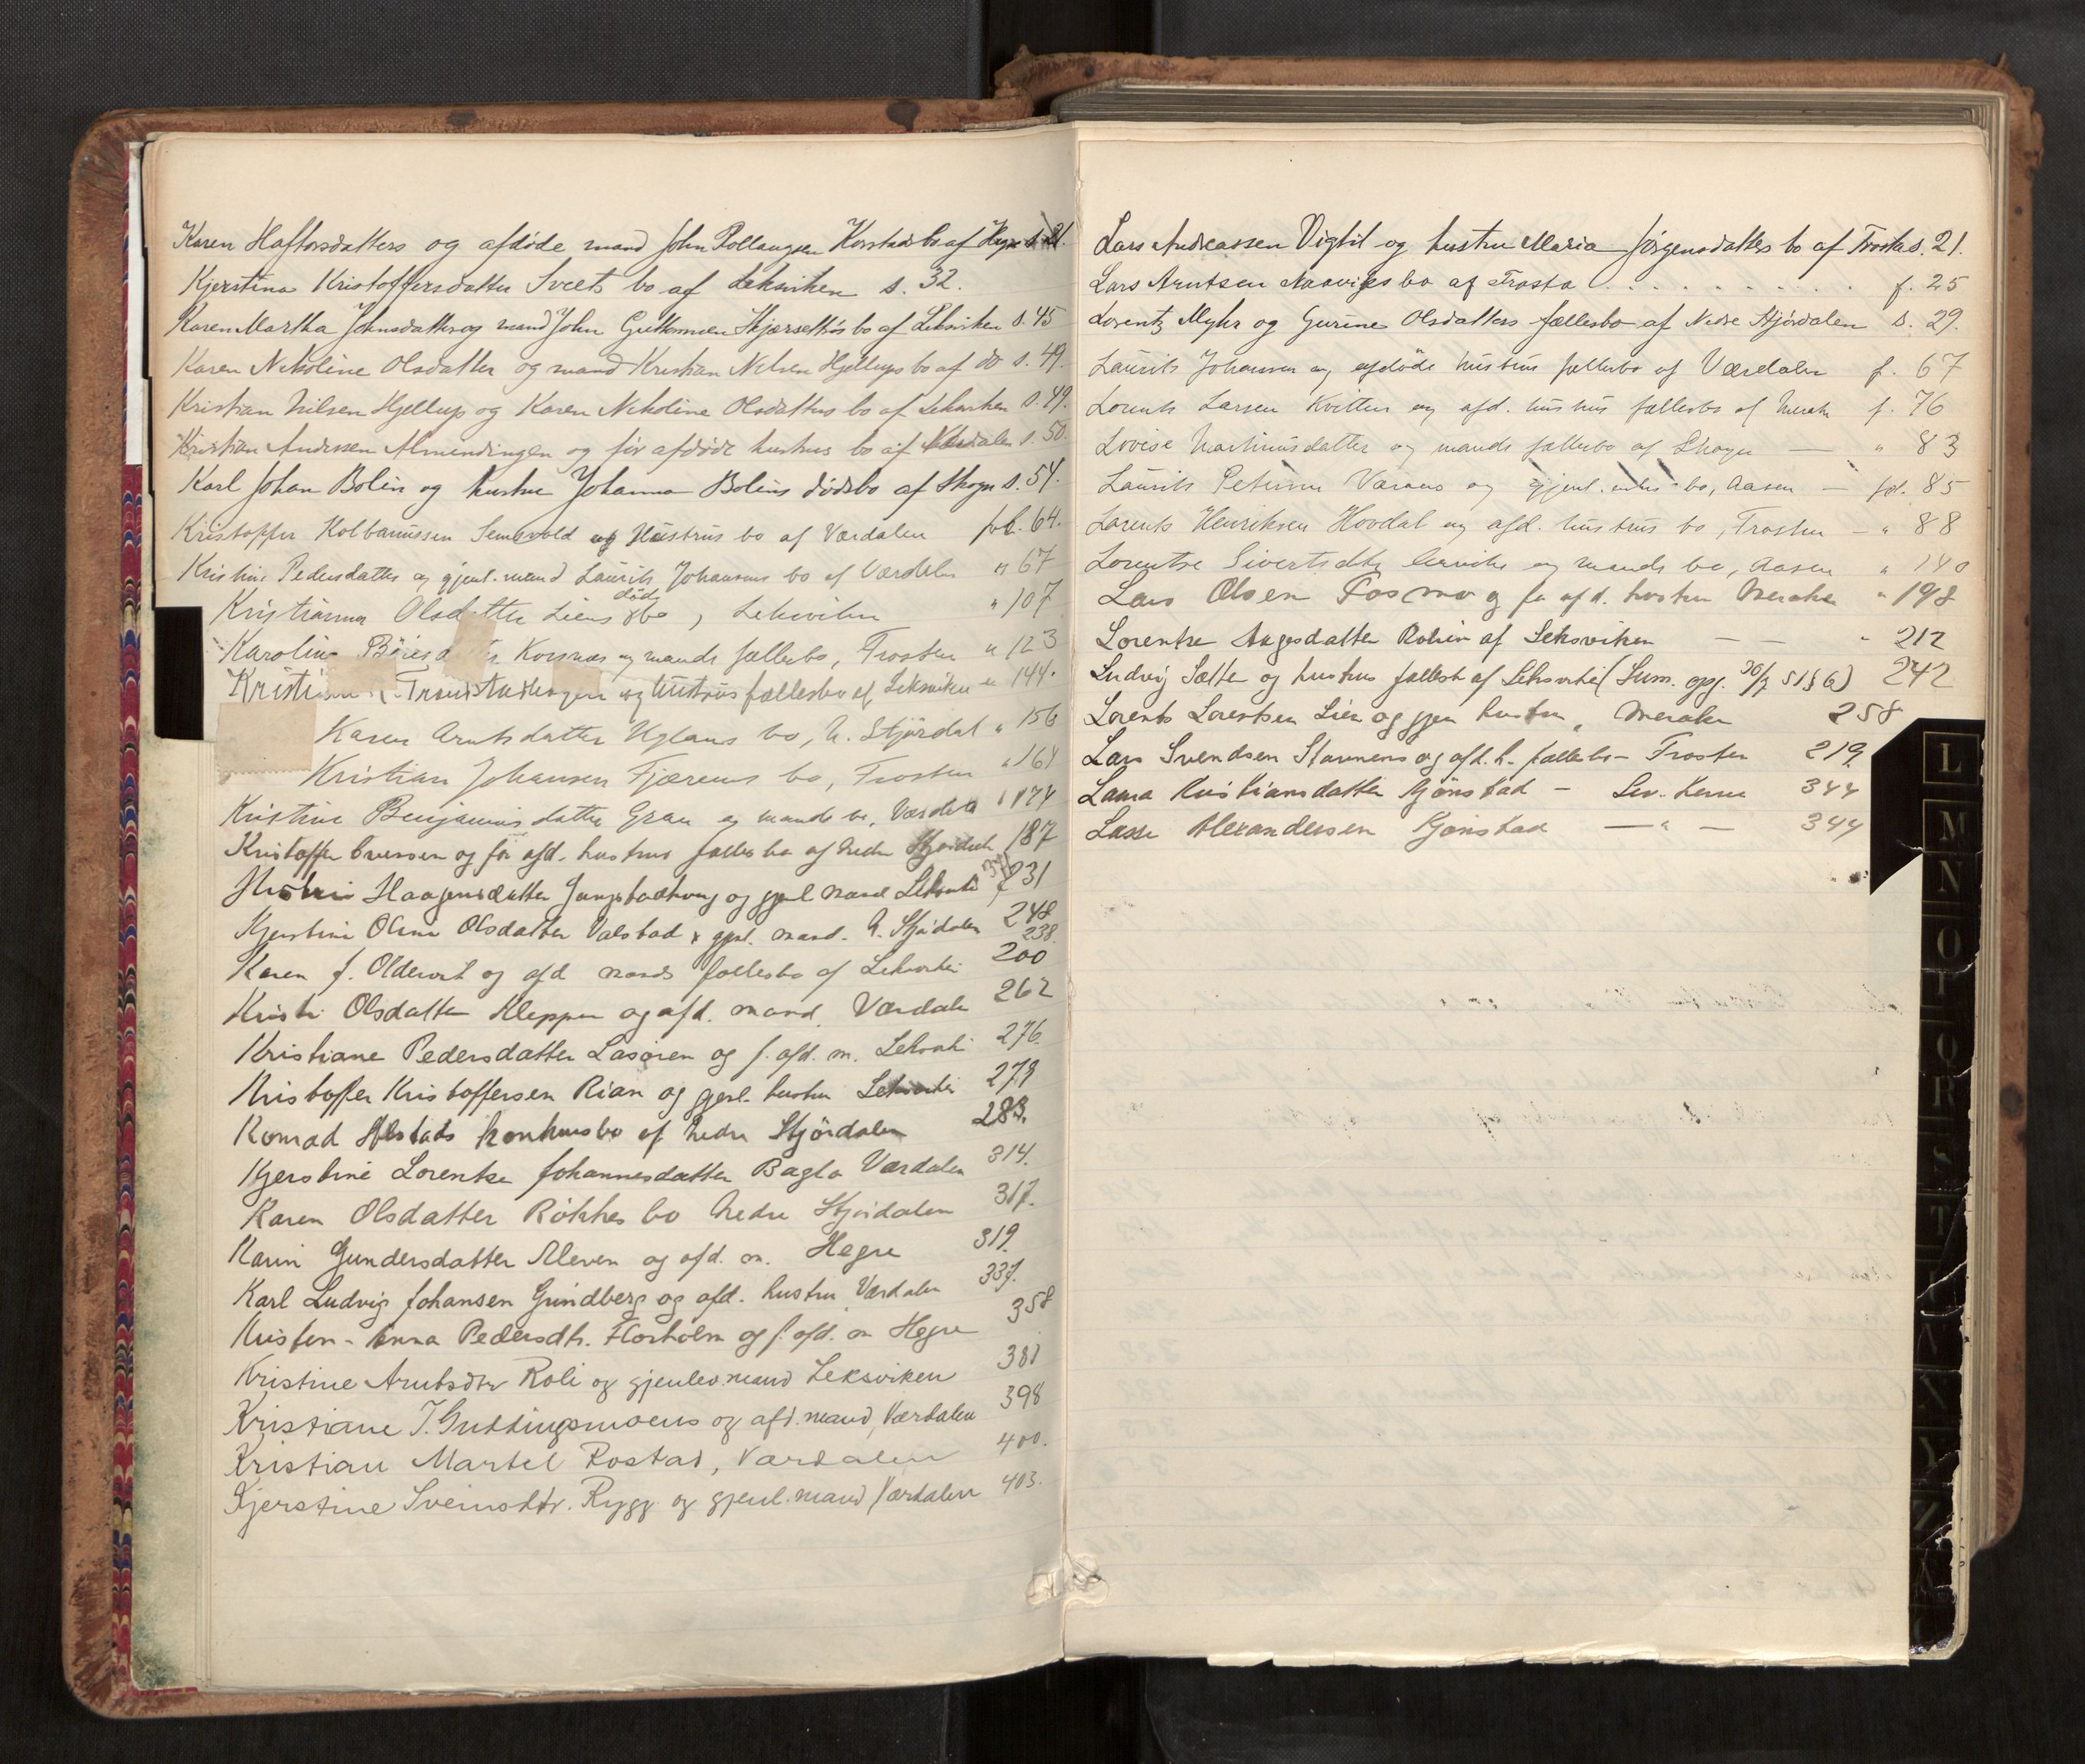 Karen Haftorsdatters og afdøde mand John Rollaugsen Korstads bo af Hegre s. 21.
Kjerstina Kristoffersdatter Sveets bo af Leksviken s. 32.
Karen Martha Johnsdatters og mand John Guttormsen bo af Leksviken s. 45
Karen Nikoline Olsdatter og mand Kristian Nilsen Hjellups bo af do s. 49.
Kristian Nilsen Hjellup og Karen Nikoline Olsdatters bo af Leksviken s. 49.
Kristian Andersen Almendingen og før afdøde hustrus bo af Værdalen s. 50.
Karl Johan Bolin og hustru Johanna Bolins dødsbo af Skogn s. 54.
Kristoffer Kolbanussen Semsvold og Hustrus bo af Værdalen fol. 64.
Kristine Pedersdatter og gjenl. mand Laurits Johansens bo af Værdalen " 67
Kristianna Olsdatter Liens dødsbo, Leksviken " 107
Karoline Korsnæs og mands fællesbo, Frosten " 123
og Hustrus fællesbo af Leksviken " 144.
Karen Arntsdatter Uglans bo, N. Stjørdal " 156
Kristian Johansen Fjærems bo, Frosten " 161
Kristine Benjaminsdatter Gran og mands bo, Værdalen " 174
Kristoffer Iversen og før afd. hustrus fælles bo af Nedre Stjørdalen 187
Haagensdatter og gjenl mand Leksviken 231
Kjerstine Oline Olsdatter Valstad & gjenl. mand. N. Stjørdalen 248 238.
Karen J. Oldervik og afd mands fællesbo af Leksviken 200
Kristi Olsdatter Kleppen og afd. mand. Værdalen 262
Kristiane Pedersdatter Lasåren og f. afd. m. Leksviken 276.
Kristoffer Kristoffersen Rian og gjenl. hustru Leksviken 279
Konrad Alstads konkursbo af Nedre Stjørdalen 283.
Kjerstine Lorentze Johannesdatter Bagla Værdalen 314.
Karen Olsdatter Røkkes bo Nedre Stjørdalen 317.
Karin Gundersdatter Kleven og afd. m. Hegre 319.
Karl Ludvig Johansen Grindberg og afd. hustru Værdalen 337.
Kristen-Anna Pedersdtr. Florholm og f. afd. m Hegre 358
Kristine Arntsdtr Roli og gjenlev. mand Leksviken 381
Kristiane J. Guddingsmoens og afd. mand, Værdalen 398
Kristian Martel Rostad, Værdalen 400.
Kjerstine Sveinsdtr. Rygg og gjenl. mand Værdalen 403.
Lars Andreassen Vigtil og hustru Maria Jørgensdatters bo af Frosta s. 21.
Lars Arntsen Naaviges bo af Frosta . . . . . . . . . . f. 25
Lorentz Myhr og Gurine Olsdatters fællesbo af Nedre Stjørdalen s. 29.
Laurits Johansen og afdøde hustrus fællesbo af Værdalen f. 67
Lorents Larsen Kvitten og afd. hustrus fællesbo af Meraker f. 76
Lovise Martinusdatter og mands fællesbo af Skogn — " 83
Laurits Petersen og gjenl. enkes bo, Aasen — fol. 85
Lorents Henriksen Hovdal og afd. hustrus bo, Frosten — " 88
Lorentse Sivertsdtr og mands bo, Aasen " 140
Lars Olsen Fosmo og før afd. hustru Meraker " 198
Lorentze Aagesdatter Rolien af Leksviken — — " 212
Ludvig Sætte og hustrus fællesb af Leksviken (Sum. opg. 30/7 51§6) 242
Lorents Lorentsen Lien og gjen hustru, Meraker 258
Lars Svendsen Stavnens og afd. h. fællesbo — Frosten 219.
Laura Kristiansdatter Kjønstad — 344
Lasse Alexandersen Kjønstad — " — 344
L
M
N
O
P
Q
R
S
T